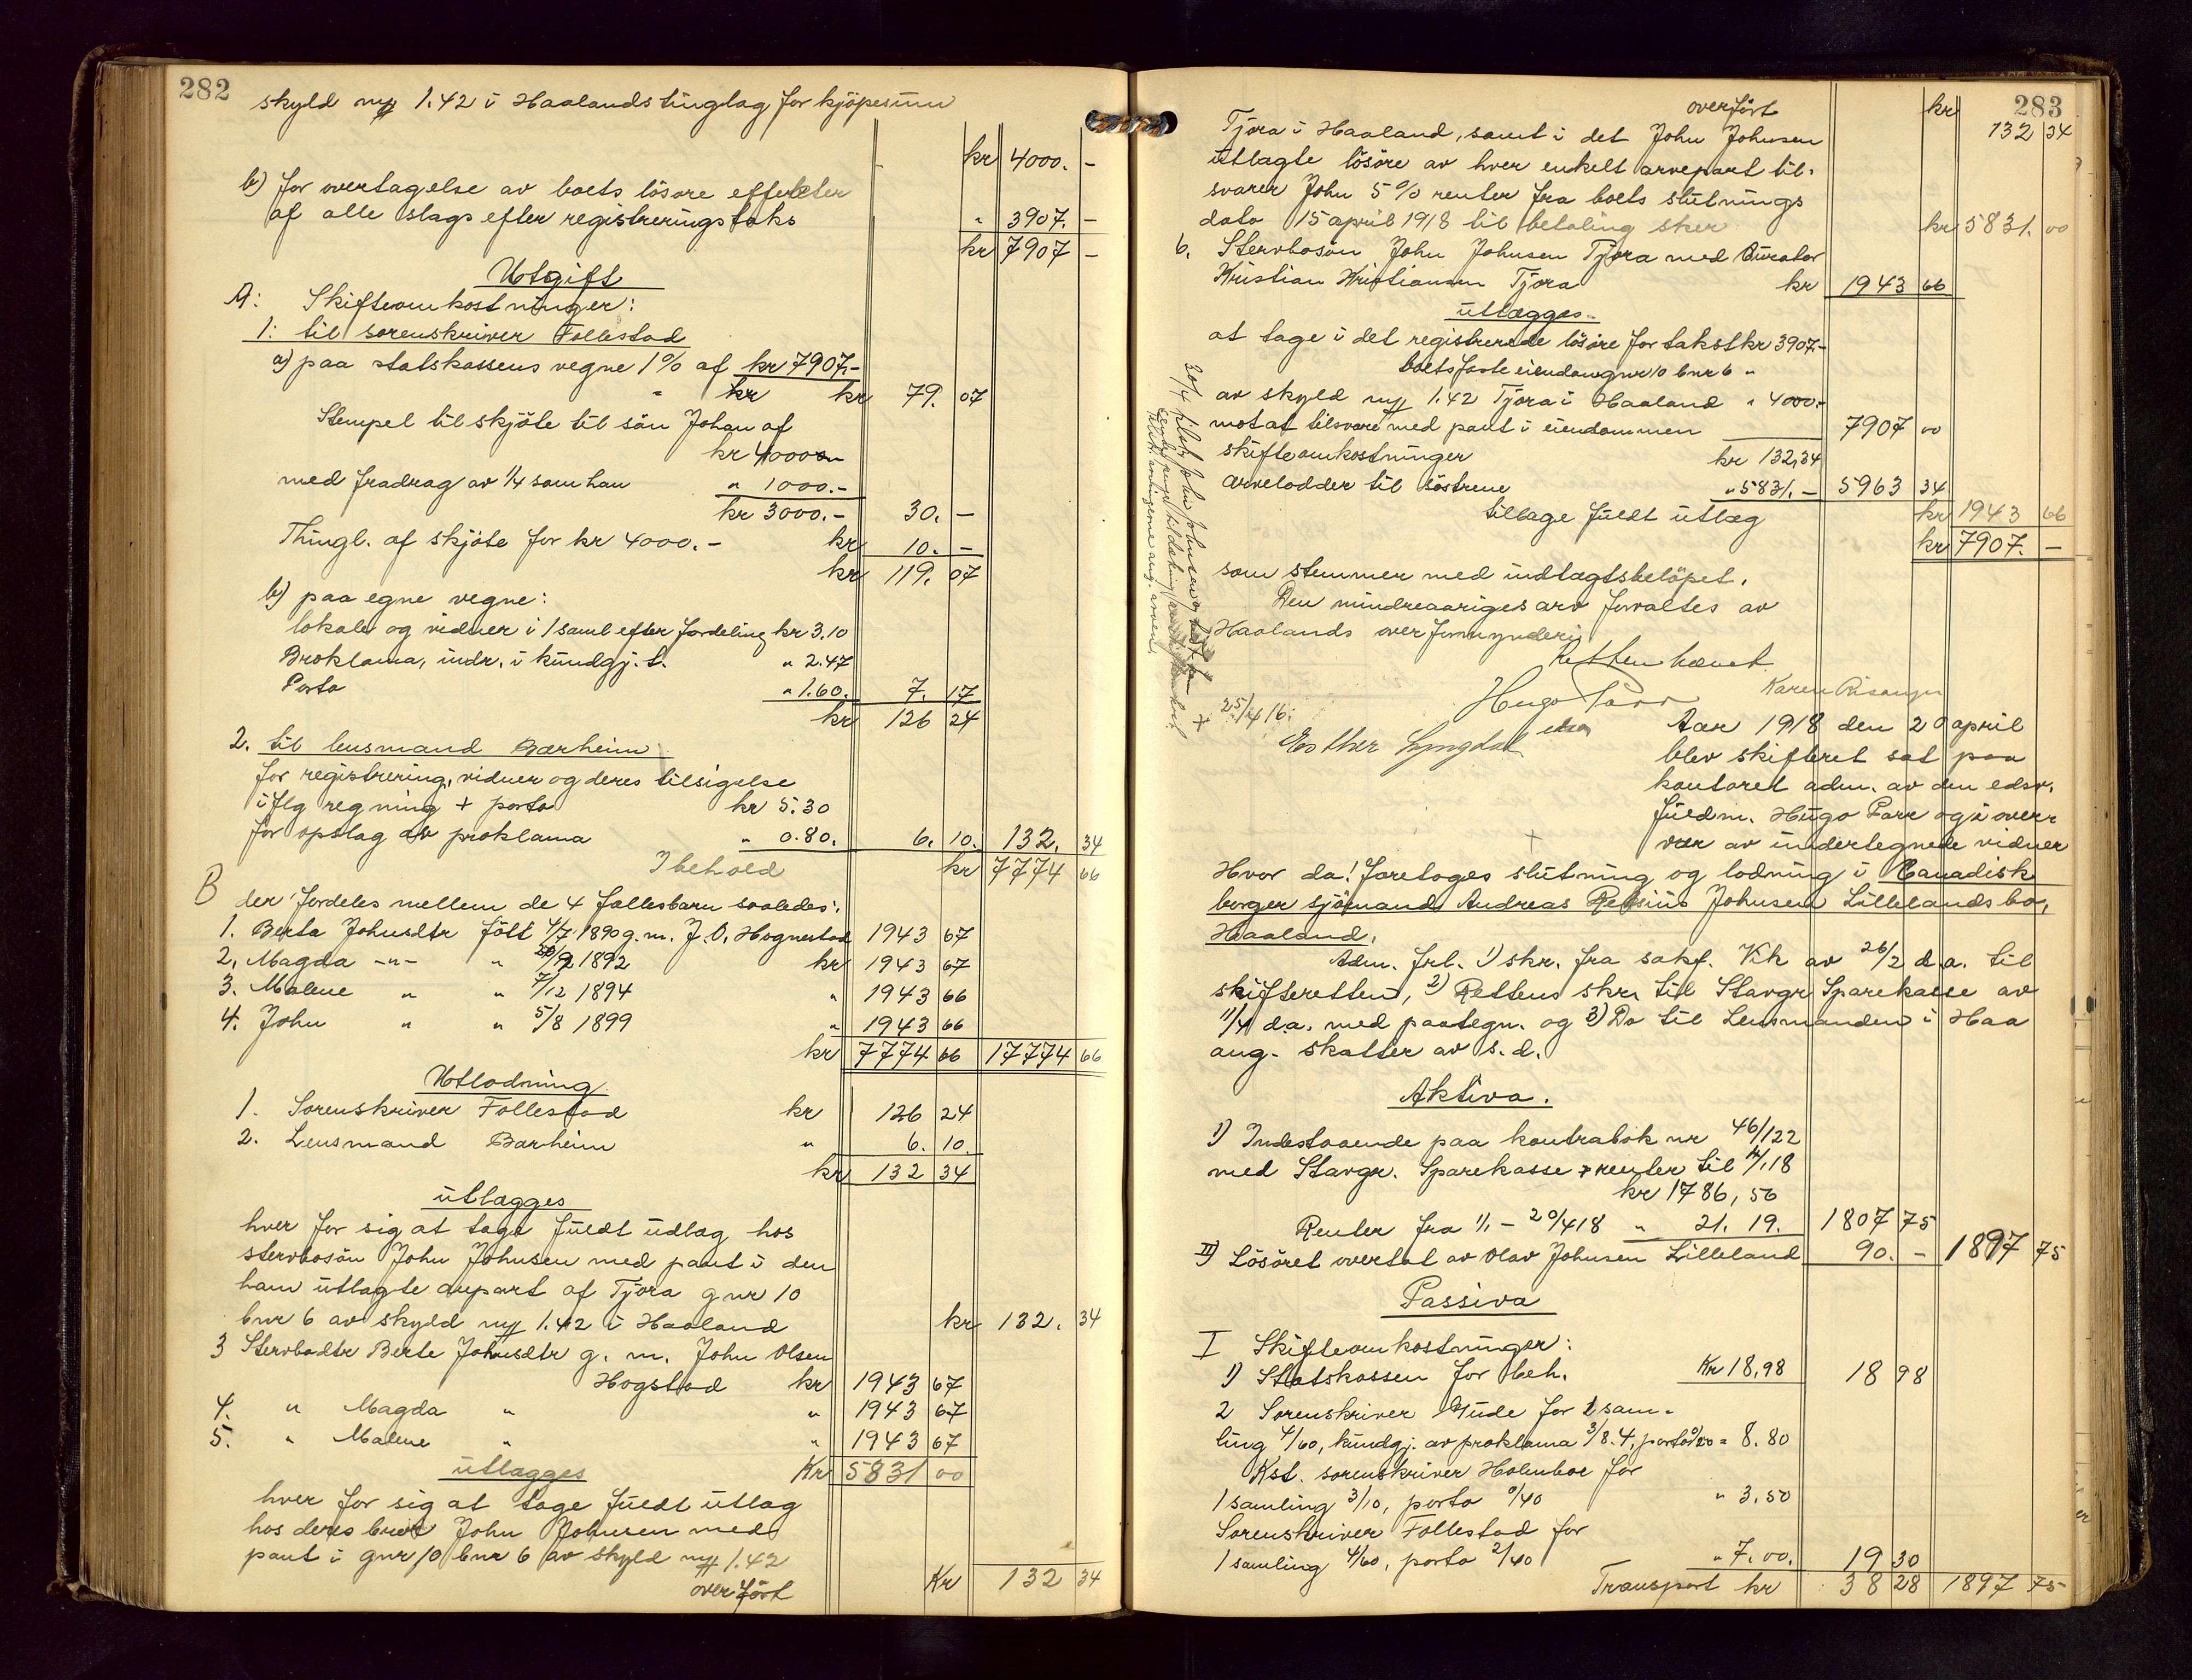 282
skyld ny 1.42 i Haalands tinglag for kjöpesum
kr 4000. -
b) for overtagelse av boets lösöre effekter
af alle slags efter registreringstakst " 3907. -
kr 7907 -
Utgift
A: Skifteomkostninger:
1: til sorenskriver Follestad
a) paa statskassens vegne 1% af kr 7907.-
" kr kr 79. 07
Stempel til skjöte til sön Johan af
kr 4000
med fradrag av 1/4 som han " 1000.-
kr 3000.- 30. -
Thingl. af skjöte for kr 4000.- kr 10. -
kr 119. 07
b) paa egne vegne:
lokale og vidner i 1 saml efter fordeling kr 3.10
Proklama, indr. i kundgj. t. " 2.47
Porto " 1.60. 7. 17
kr 126 24
2. til lensmand Bærheim
for registrering, vidner og deres tilsigelse
iflg regning + porto kr 5.30
for opslag av proklama " 0.80. 6. 10. 132. 34
I behold kr 7774 66
B der fordeles mellem de 4 fællesbarn saaledes:
1. Berta Johnsdtr född 4/7 1890 g.m. J.O. Hognestad 1943 67
2. Magda -"- " 1892 kr 1943 67
3. Malene " " 7/12 1894 " 1943 66
4. John " " 5/8 1899 " 1943 66
kr 7774 66 17774 66
Utlodning
1. Sorenskriver Follestad kr 126 24
2. Lensmand Bærheim " 6. 10.
kr 132 34
utlægges
hver for sig at tage fuldt udlæg hos
stervbosön John Johnsen med pant i den
ham utlagte anpart af Tjora gnr 10
bnr 6 av skyld ny 1.42 i Haaland kr 132. 34
3 Stervbodtr Berte Johnsdtr g. m. John Olsen
Hogstad kr 1943 67
4. " Magda " " 1943 67
5. " Malene " " 1943 67
utlægges Kr 5831 00
hver for sig at tage fuldt utlæg
hos deres bror John Johnsen med
pant i gnr 10 bnr 6 av skyld ny 1.42
overfört Kr 132 34
283
overfört kr 132 34
Tjora i Haaland, samt i det John Johnsen
utlagte lösöre av hver enkelt arvepart til-
svarer John 5% renter fra boets slutnings
dato 15 april 1918 til betaling sker kr 5831. 00
6. Stervbosön John Johnsen Tjora med Curator
Kristian Kristiansen Tjora kr 1943 66
utlægges
at tage i det registrerede lösöre for takst kr 3907.-
boets faste eiendom gnr 10 bnr 6 "
av skyld ny 1.42 Tjora i Haaland " 4000.-
mot at tilsvare med pant i eiendommen 7907 00
skifteomkostninger kr 132,34
arvelodder til söstrene " 5831.- 5963 34
tilbage fuldt utlæg kr 1943 66
kr 7907. -
som stemmer med indtægtsbelöpet.
Den mindreaariges arv forvaltes av
Haalands overformynderi
Retten hævet
Hugo Parr Karen Risanger
25/4 16: edsv
Esther Lyngdal
30/4
Aar 1918 den 20 april
blev skifteret sat paa
kontoret adm. av den edsv.
fuldm. Hugo Parr og i over-
vær av undertegnede vidner
Hvor da! foretoges slutning og lodning i Canadisk
borger sjömand Andreas Johnsen Lillelands bo,
Haaland.
Adm. frl. 1) skr. fra sakf. Vik av 26/2 d.a. til
skifteretten, 2) Rettens skr. til Stavgr Sparekasse av
11/4 d.a. med paategn. og 3) Do til Lensmanden i Haa
ang. skatter av s. d.
Aktiva.
1) Indestaaende paa kontrabok nr 46/122
med Stavgr. Sparekasse + renter til 1/1 18
kr 1786,56
Renter fra 1/1 - 20/4 18 " 21. 19. 1807 75
II) Lösöret overtat av Olav Johnsen Lilleland 90. - 1897 75
Passiva
I Skifteomkostninger:
1) Statskassen for beh. Kr 18,98 18 98
2 Sorenskriver Gude for 1 sam-
ling 4/60, kundgj. av proklama 3/8.4, porto 0/20 = 8.80
Kst. sorenskriver Holmboe for
1 samling 3/10, porto 0/40 " 3.50
Sorenskriver Follestad for
1 samling 4/60, porto 2/40 " 7.00. 19 30
Transport kr 38 28 1897 75